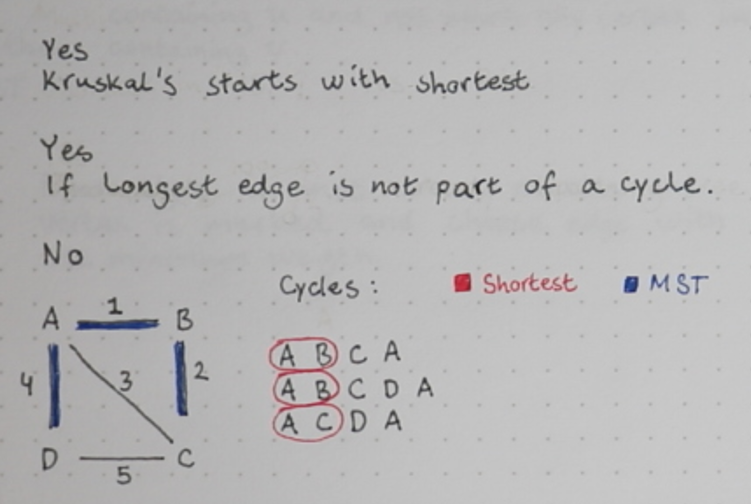 Yes
Kruskal's starts with shortest
Yes
If Longest edge is not part of a cycle.
No
Cycles : Shortest MST
A 1 B
A B C A
4 3 2
A B C D A
A C D A
D 5 C